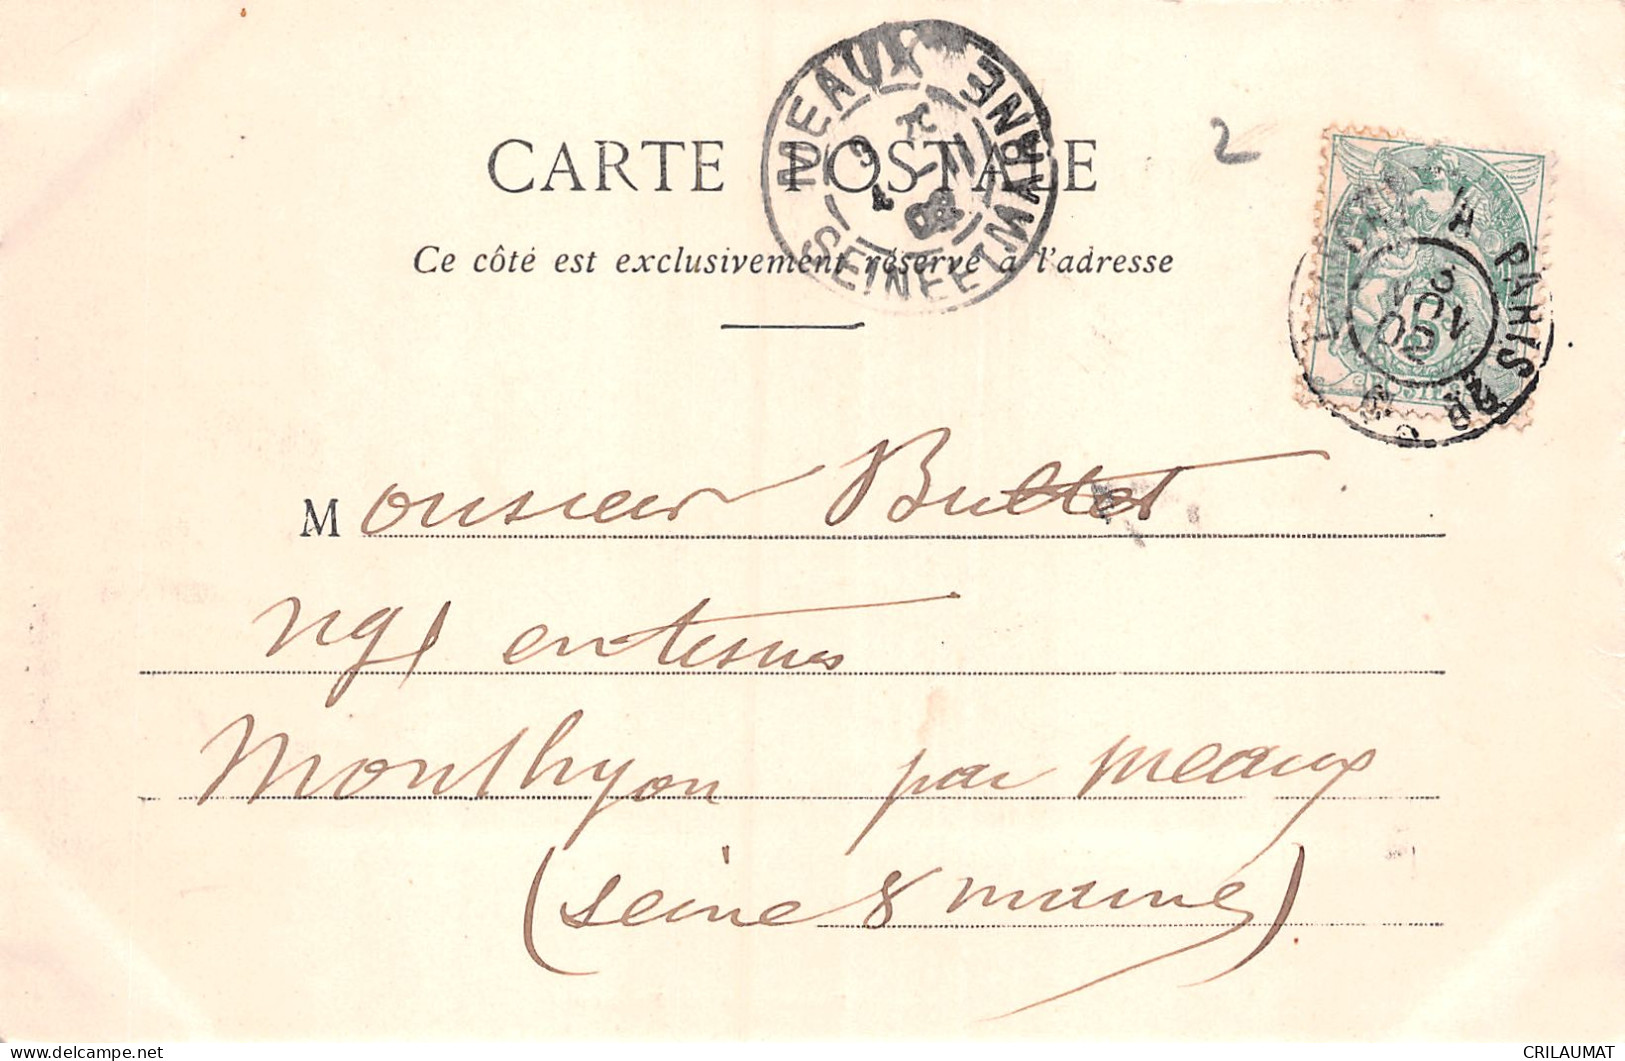 MEAUX
SEINE ET MARNE
2
CARTE POSTALE
Ce côté est exclusivement réservé à l'adresse
A PARIS
3
NOV
02
POSTES
Monsieur Buttet
ngt en tissus
Monthyon par Meaux
(Seine & Marne)
CRILAUMAT